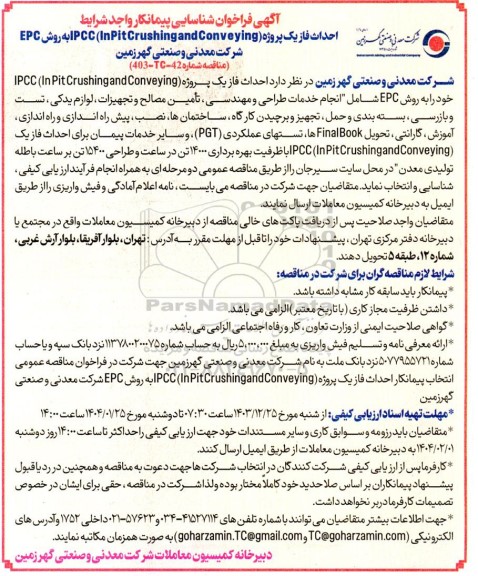 آگهی فراخوان شناسایی پیمانکار واجد شرایط
احداث فاز یک پروژه IPCC (In Pit Crushing and Conveying) به روش EPC
شرکت معدنی و صنعتی گهرزمین
(مناقصه شماره 42-TC-403)
شرکت معدنی و صنعتی گهر زمین در نظر دارد احداث فاز یک پروژه IPCC (In Pit Crushing and Conveying)
خود را به روش EPC شامل "انجام خدمات طراحی و مهندسی، تأمین مصالح و تجهیزات، لوازم یدکی، تست
و بازرسی، بسته بندی و حمل، تجهیز و برچیدن کارگاه، ساختمان ها، نصب، پیش راه اندازی و راه اندازی،
آموزش، گارانتی، تحویل Final Book ها، تستهای عملکردی (PGT)، و سایر خدمات پیمان برای احداث فاز یک
IPCC (In Pit Crushing and Conveying) با ظرفیت بهره برداری ۱۴۰۰۰ تن در ساعت و طراحی ۱۵۴۰۰ تن بر ساعت باطله
تولیدی معدن" در محل سایت سیرجان را از طریق مناقصه عمومی دو مرحله ای به همراه انجام فرآیند ارزیابی کیفی،
شناسایی و انتخاب نماید. متقاضیان جهت شرکت در مناقصه می بایست، نامه اعلام آمادگی و فیش واریزی را از طریق
ایمیل به دبیرخانه کمیسیون معاملات ارسال نمایند.
متقاضیان واجد صلاحیت پس از دریافت پاکت های خالی مناقصه از دبیرخانه کمیسیون معاملات واقع در مجتمع یا
دبیرخانه دفتر مرکزی تهران، پیشنهادات خود را تا قبل از مهلت مقرر به آدرس: تهران، بلوار آفریقا، بلوار آرش غربی،
شماره ۱۲، طبقه ۵ تحویل دهند.
شرایط لازم مناقصه گران برای شرکت در مناقصه:
*پیمانکار باید سابقه کار مشابه داشته باشد.
*داشتن ظرفیت مجاز کاری (با تاریخ معتبر) الزامی می باشد.
*گواهی صلاحیت ایمنی از وزارت تعاون، کار و رفاه اجتماعی الزامی می باشد.
*ارائه معرفی نامه و تسلیم فیش واریزی به مبلغ ۵.۰۰۰.۰۰۰ ریال به حساب شماره ۱۱۳۷۸۰۲۰۰۷۵ نزد بانک سپه و یا حساب
شماره ۵۰۷۷۹۵۵۷۲۱ نزد بانک ملت به نام شرکت معدنی و صنعتی گهرزمین جهت شرکت در فراخوان مناقصه عمومی
انتخاب پیمانکار احداث فاز یک پروژه IPCC (In Pit Crushing and Conveying) به روش EPC شرکت معدنی و صنعتی
گهرزمین
*مهلت تهیه اسناد ارزیابی کیفی: از شنبه مورخ ۱۴۰۳/۱۲/۲۵ ساعت ۰۷:۳۰ تا دوشنبه مورخ ۱۴۰۴/۰۱/۲۵ ساعت ۱۴:۰۰
*متقاضیان باید رزومه و سوابق کاری و سایر مستندات خود جهت ارزیابی کیفی را حداکثر تا ساعت ۱۴:۰۰ روز دوشنبه
۱۴۰۴/۰۲/۰۱ به دبیرخانه کمیسیون معاملات از طریق ایمیل ارسال کنند.
*کارفرما پس از ارزیابی کیفی شرکت کنندگان در انتخاب شرکت ها جهت دعوت به مناقصه و همچنین در رد یا قبول
پیشنهاد پیمانکاران بر اساس صلاحدید خود کاملاً مختار بوده و لذا شرکت در مناقصه، حقی برای ایشان در خصوص
تصمیمات کارفرما در بر نخواهد داشت.
*جهت اطلاعات بیشتر متقاضیان می توانند با شماره تلفن های ۴۱۵۲۷۱۱۴-۰۳۴ و ۵۷۶۲۳-۰۲۱ داخلی ۱۷۵۲ و آدرس های
الکترونیکی (TC@goharzamin.com و goharzamin.TC@gmail.com) به صورت همزمان مکاتبه نمایند.
دبیرخانه کمیسیون معاملات شرکت معدنی و صنعتی گهر زمین